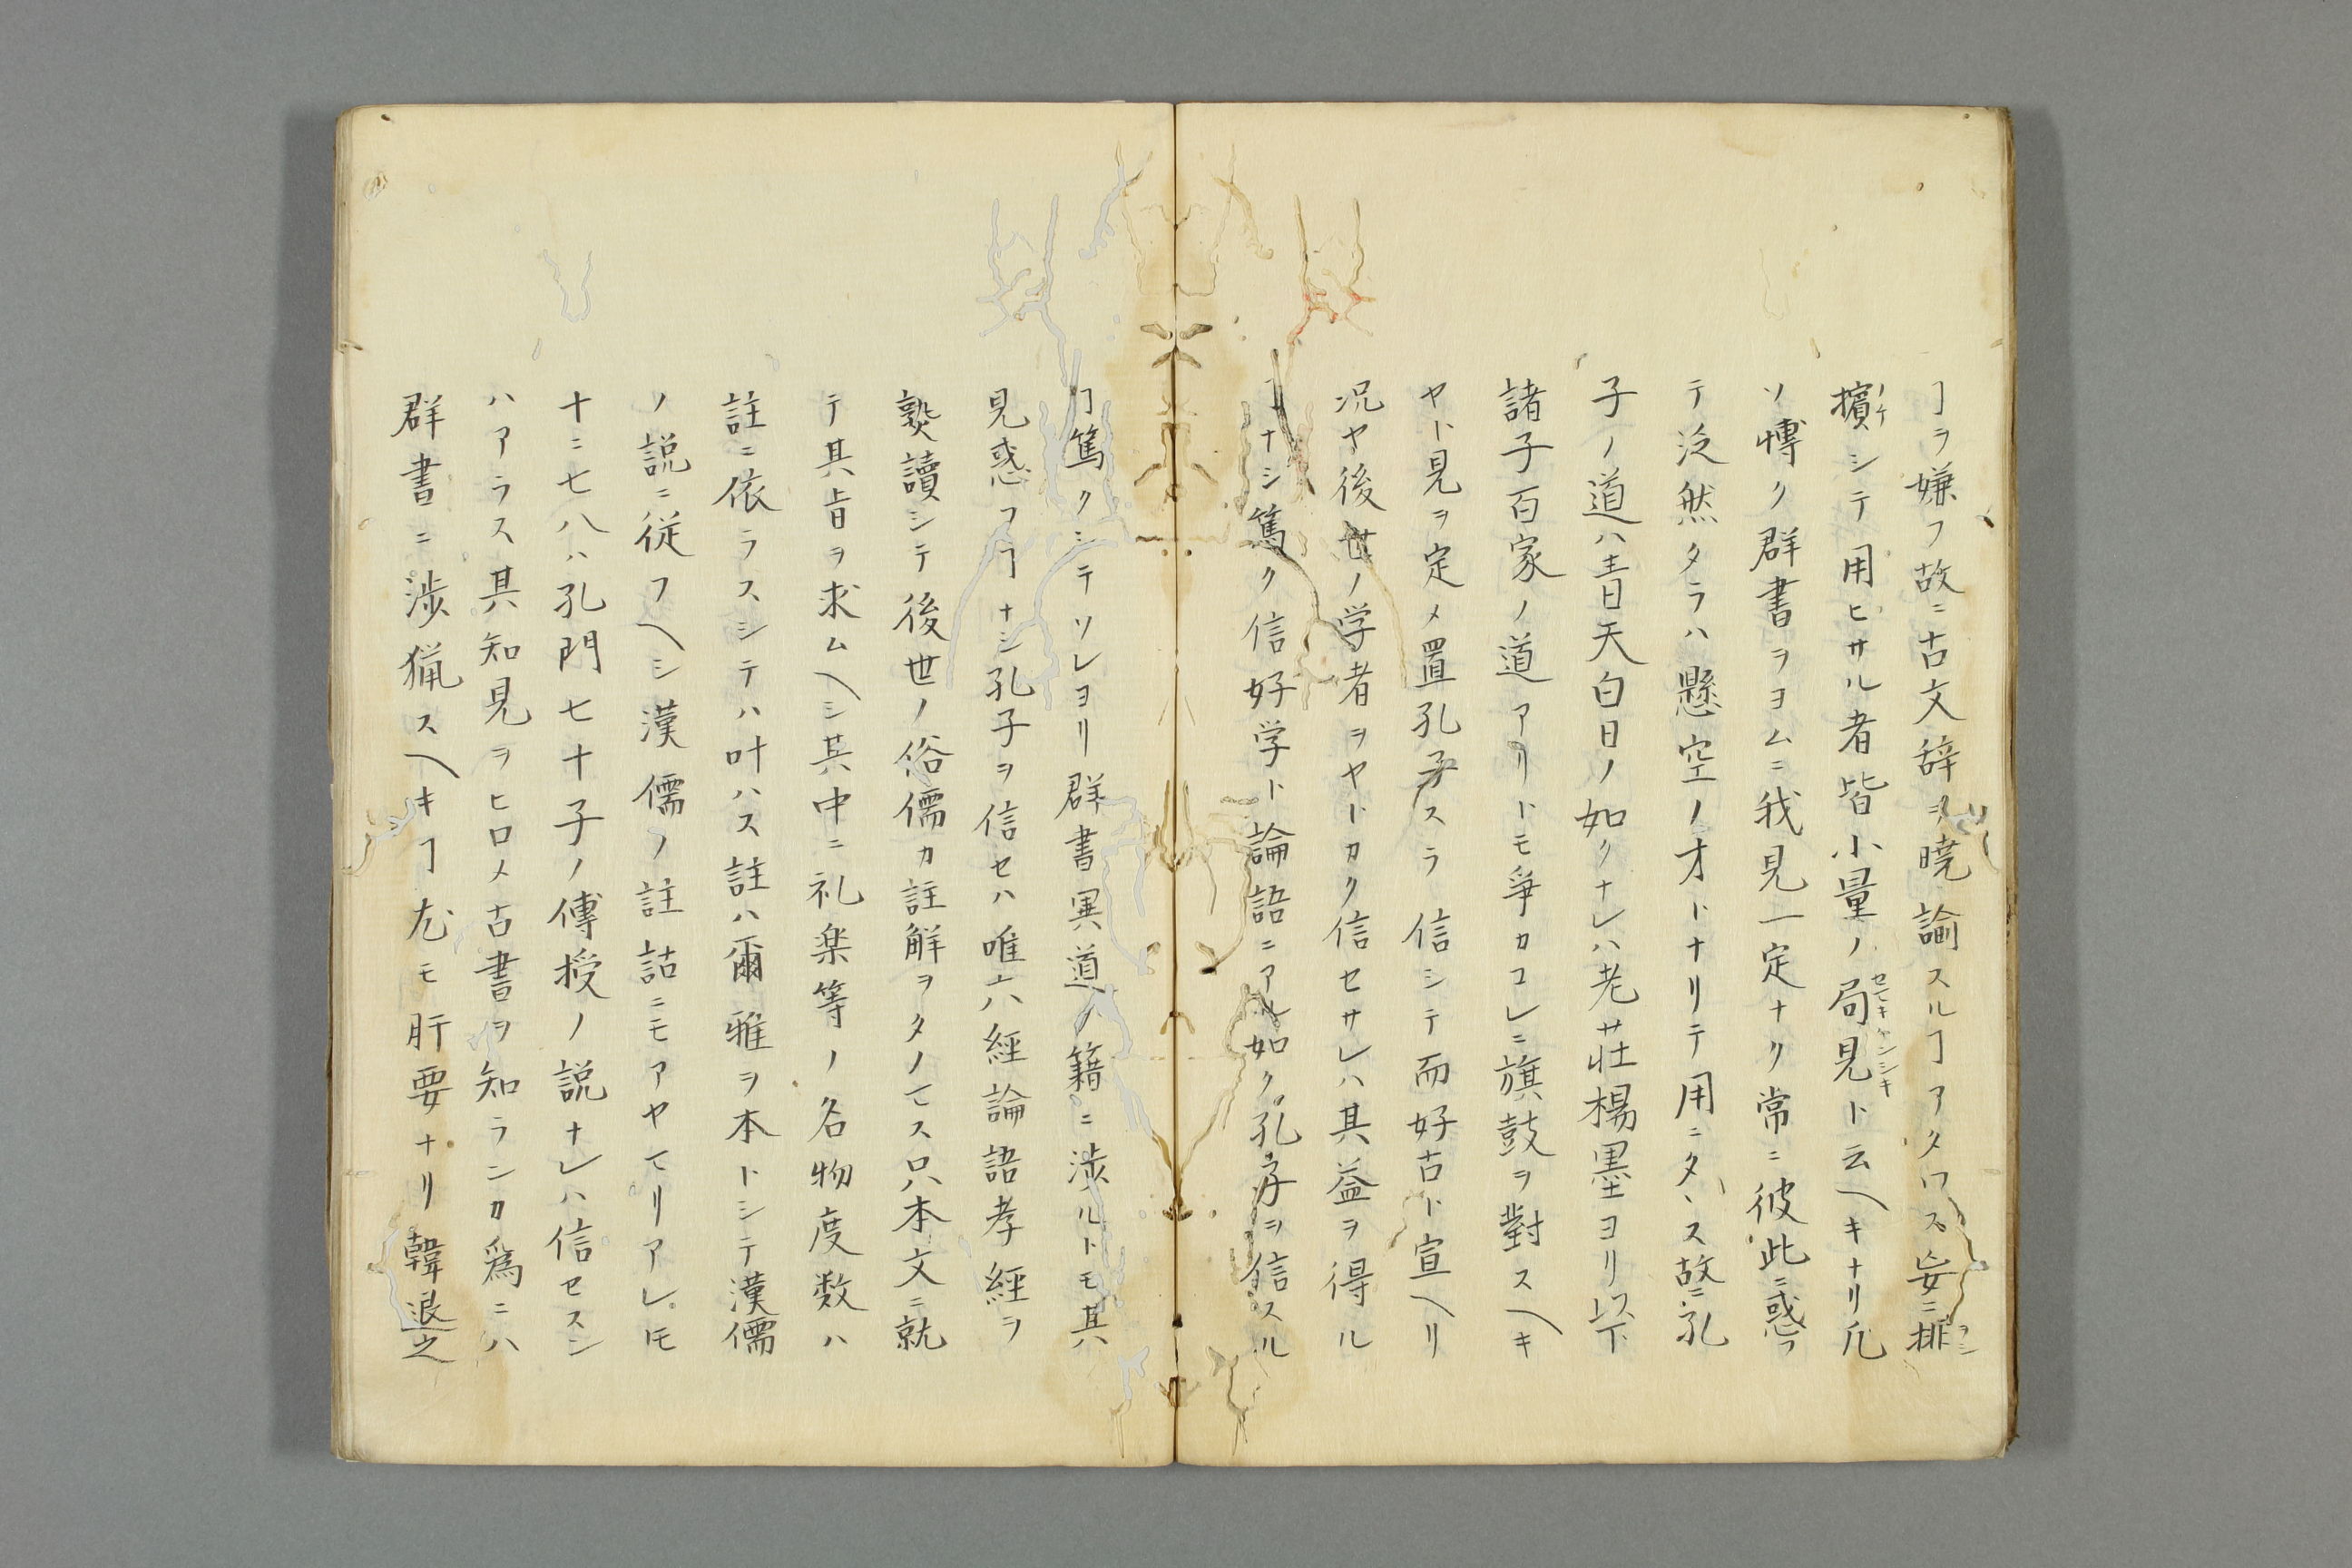 ヿヲ嫌フ故ニ古文辞ヲ暁諭スルヿアタワス妄ニ排
擯シテ用ヒサル者皆小量ノ局見ト云ヘキナリ凡
ソ博ク群書ヲヨムニ我見一定ナク常ニ彼此ニ惑フ
テ泛然タラハ懸空ノ才トナリテ用ニタヽス故ニ孔
子ノ道ハ青天白日ノ如クナレハ老荘楊墨ヨリ以下
諸子百家ノ道アリトモ争カコレニ旗鼓ヲ對スヘキ
ヤト見ヲ定メ置孔子スラ信シテ而好古ト宣ヘリ
况ヤ後世ノ学者ヲヤトカク信セサレハ其益ヲ得ル
ヿナシ篤ク信好学ト論語ニアル如ク孔子ヲ信スル
ヿ篤クシテソレヨリ群書異道ノ籍ニ渉ルトモ其
見惑フヿナシ孔子ヲ信セハ唯六經論語孝經ヲ
熟讀シテ後世ノ俗儒カ註解ヲタノマス只本文ニ就
テ其旨ヲ求ムヘシ其中ニ礼楽等ノ名物度数ハ
註ニ依ラスシテハ叶ハス註ハ爾雅ヲ本トシテ漢儒
ノ説ニ従フヘシ漢儒ノ註詁ニモアヤマリアレ𪜈
十ニ七八ハ孔門七十子ノ傳授ノ説ナレハ信セスン
ハアラス其知見ヲヒロメ古書ヲ知ランカ爲ニハ
群書ニ渉猟スヘキヿ尤モ肝要ナリ韓退之